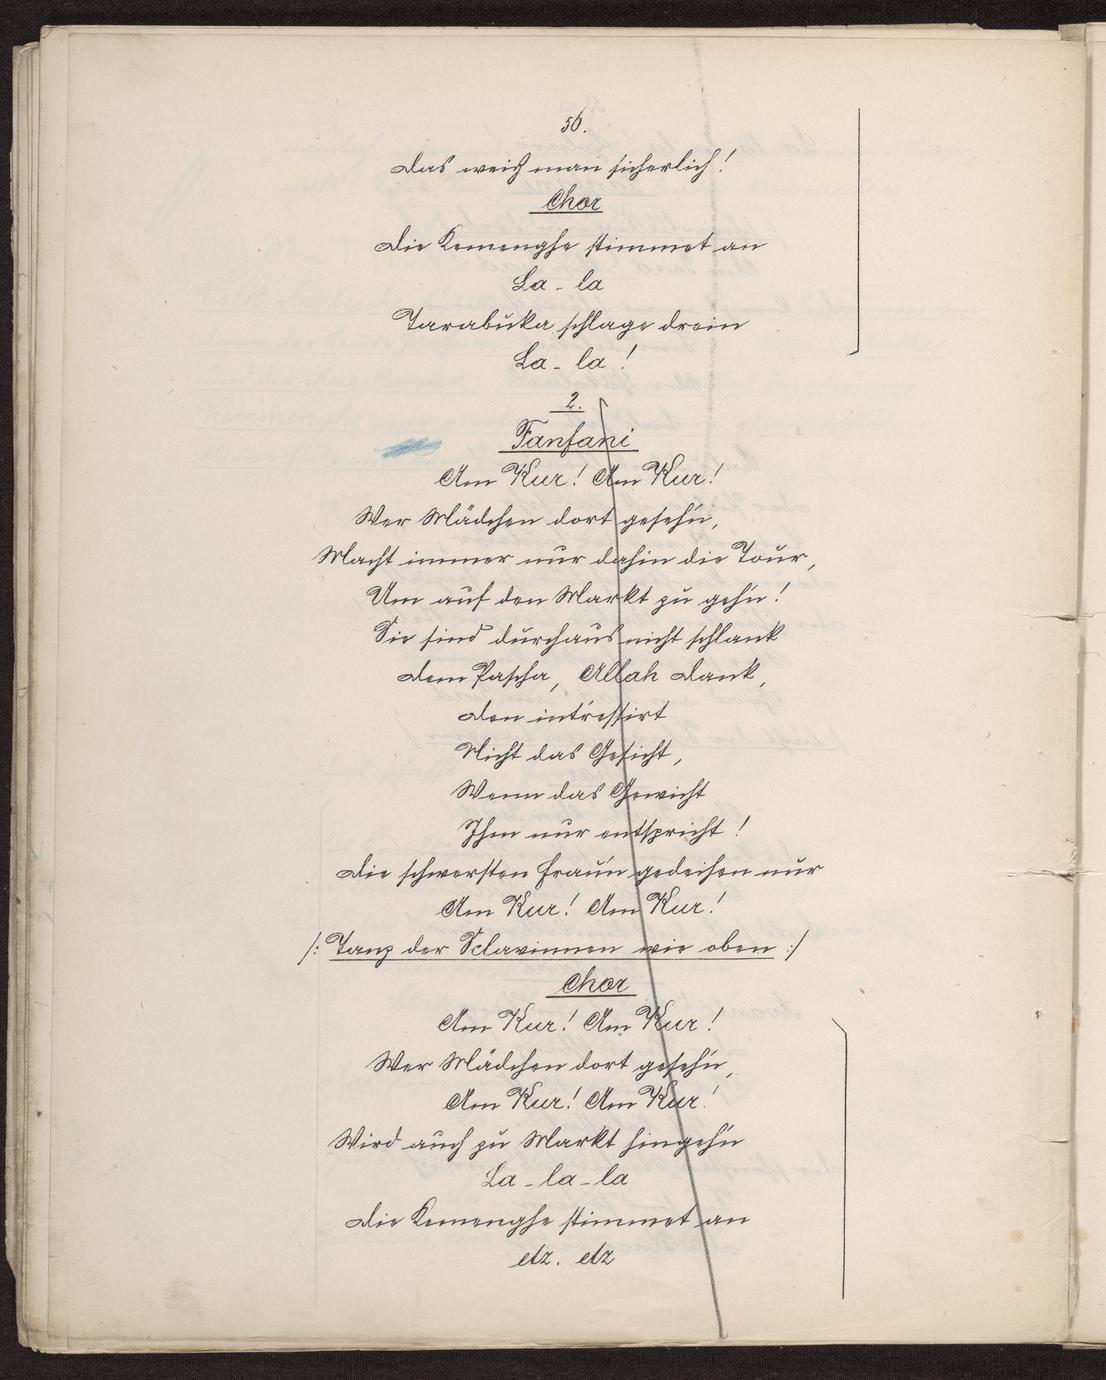 56.
Das weiß man sicherlich!
Chor
Die Kemenghe stimmet an
La - la
Tarabuka schlage drein
La - la!
2.
Fanfani
Am Kur! Am Kur!
Wer Mädchen dort geseh'n,
Macht immer nur dahin die Tour,
Um auf den Markt zu geh'n!
Sie sind durchaus nicht schlank
Dem Pascha, Allah Dank,
Den int'ressirt
Nicht das Gesicht,
Wenn das Gewicht
Ihm nur entspricht!
Die schwersten Frau'n gedeihen nur
Am Kur! Am Kur!
/: Tanz der Sclavinnen wie oben :/
Chor
Am Kur! Am Kur!
Wer Mädchen dort geseh'n,
Am Kur! Am Kur!
Wird auch zu Markt hingeh'n
La - la - la
Die Kemenghe stimmet an
etz. etz